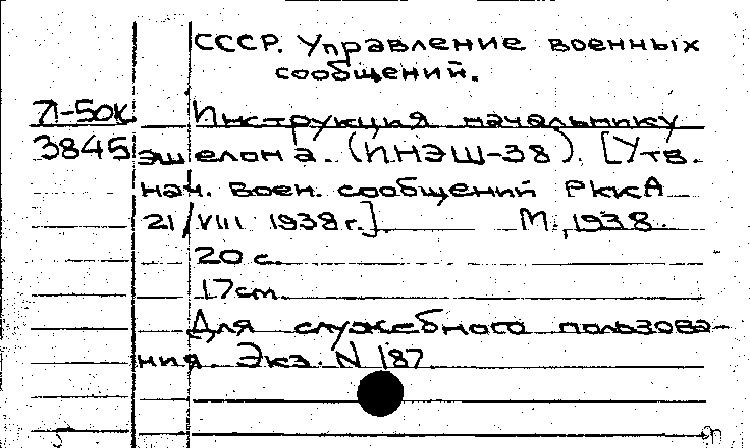 СССР. Управление военных
сообщений.
71-50к Инструкция начальнику
3845 эшелона. (ИНЭШ-38). [Утв.
нач. воен. сообщений РККА
21/VIII 1938 г.]. М., 1938.
20 с.
17 cm.
Для служебного пользова-
ния. Экз. N 187